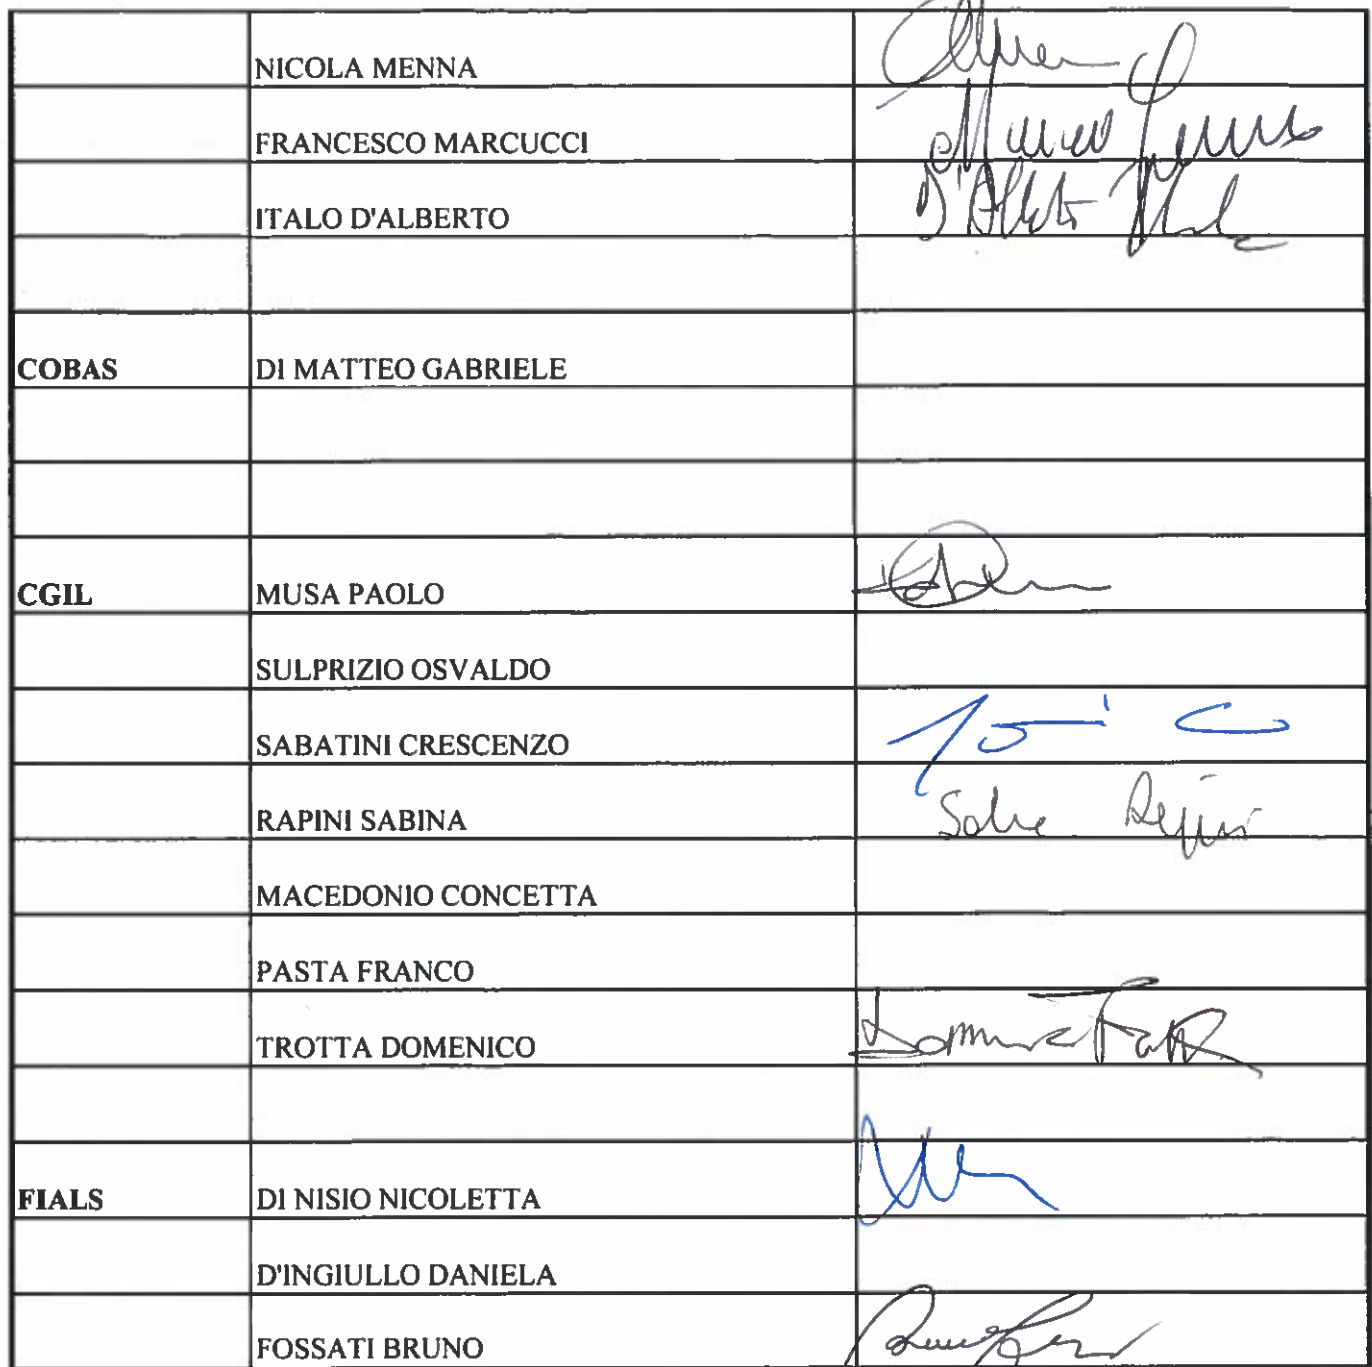 NICOLA MENNA
FRANCESCO MARCUCCI
ITALO D'ALBERTO D'Alberto Italo
COBAS DI MATTEO GABRIELE
CGIL MUSA PAOLO
SULPRIZIO OSVALDO
SABATINI CRESCENZO
RAPINI SABINA
MACEDONIO CONCETTA
PASTA FRANCO
TROTTA DOMENICO
FIALS DI NISIO NICOLETTA
D'INGIULLO DANIELA
FOSSATI BRUNO